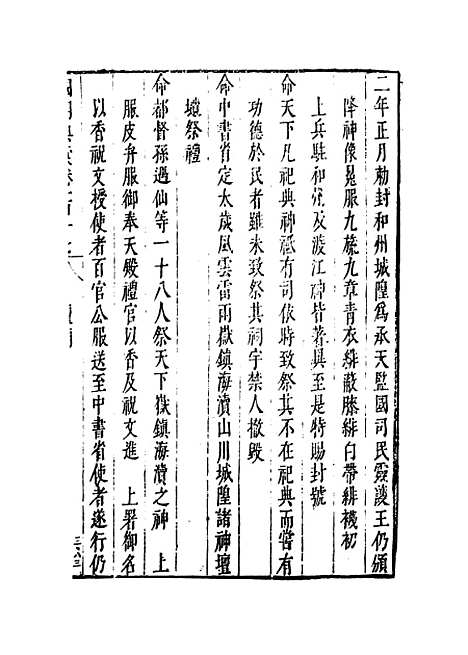 二年正月勑封和州城隍爲承天監國司民靈護王仍頒
降神像冕服九旒九章青衣緋蔽膝緋白帶緋襪初
上兵駐和州及渡江神皆著異至是特賜封號
命天下凡祀典神祗有司依時致祭其不在祀典而嘗有
功德於民者雖未致祭其祠宇禁人撤毀
命中書省定太歲風雲雷雨嶽鎮海瀆山川城隍諸神壇
壝祭禮
命都督孫遇仙等一十八人祭天下嶽鎮海瀆之神 上
服皮弁服御奉天殿禮官以香及祝文進 上署御名
以香祝文授使者百官公服送至中書省使者遂行仍
國朝典彙卷之百十七